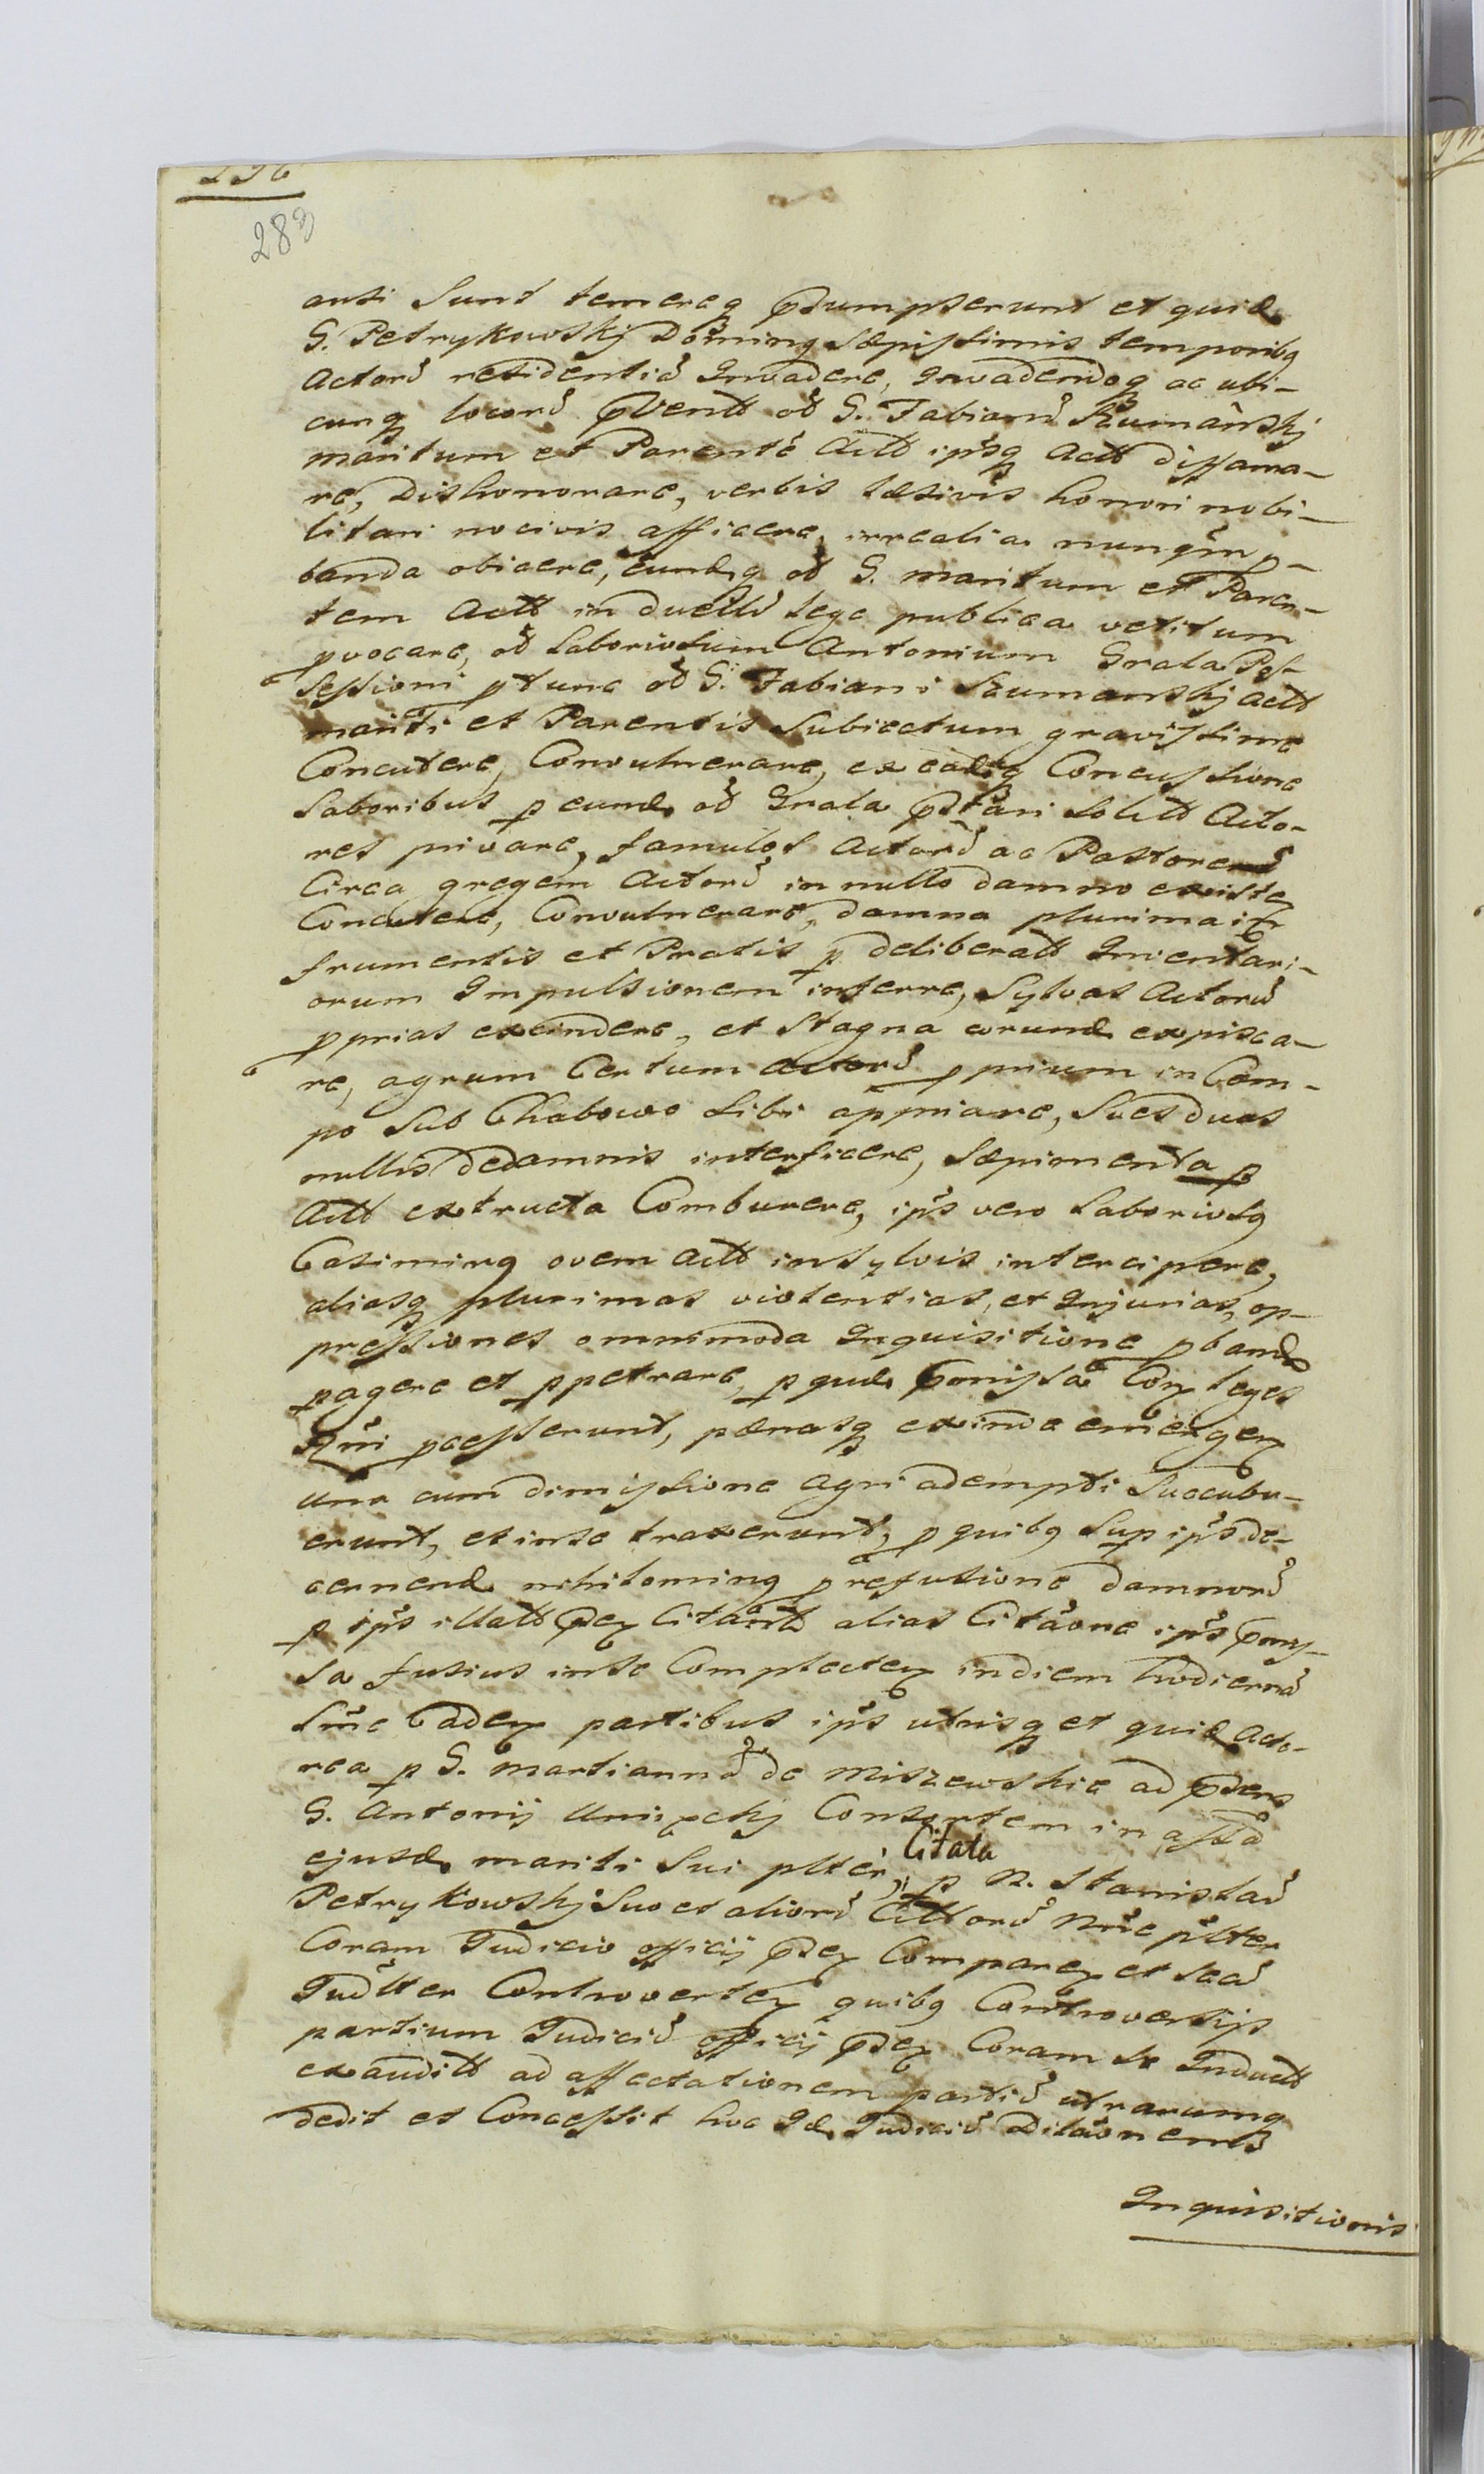 283
ausi Sunt temereq præsumpserunt et quid
G. Petrykowskj Dominus sæpissimis temporibq
Actorū residentiā Invadere, Invadendoq ac ubi-
cunq locorū oð G. Fabianū Szumanskj
maritum et Parentē Actt ipsq Actt diffama-
re, Dishonorare, verbis læsivis honori nobi-
litari nocivis afficere, irrealia nunqm p-
banda obiicere, eundq oð G. maritum et Paren-
tem Actt in duellū lege publica vetitum
pvocare, oð Laboriosum Antonium Grala Pos-
sessioni ptunc oð G. Fabiani Szumanskj Actt
mariti et Parentis Subiectum gravissime
Concutere, Convulnerare, ex eadq Concussione
Laboribus p eund oð Grala præstari solitt Acto-
res privare, famulos Actorū ac Pastorem
Circa gregem Actorū in nullo damno existen
Concutere, Convulnerare, damna plurima in
frumentis et Pratis p deliberatt Inventari-
orum Impulsionem inferre, Sylvas Actorū
pprias excindere, et Stagna eorund expisca-
re, agrum Certum Actorū pprium in Cam-
po Sub Chabowo Sibi appriare, Sues duas
nullis de damnis interficere, Sæpimenta p
Actt extructa Comburere, ips vero Laboriosq
Casimirq ovem Actt in sylvis intercipere,
aliasq plurimas violentias, et Injurias, op-
pressiones omnimoda Inquisitione pband
pagere et ppetrare, p qud pmissa Con leges
Rni pcesserunt, pænasq exinde emergen
una cum dimissione agri adempti Succubu-
erunt, et in se traxerunt, p quibq Sup ips de-
cernend nihilominq p refusione damnorū
p ips illatt Citantt alias Citaone ips pmis-
sa fusius in se Complecten in diem hodiernā
Sme Caden partibus ips utrisq et quid Acto-
rea p G. Martiannā de Miszewskie ad præsens
G. Antonij Consortem in assā
ejusd mariti Sui plter, Citata p N. Stanislaū
Petrykowskj Suo et aliorū Cittorū Nne plter
Coram Judicio officij Comparen et sed
Judlter Controverten quibq Controversijs
partium Judiciū officij Coram se Inductt
exauditt ad affectationem partiū utrarumq
dedit et Concessit hoc Id Judiciū Dilaonem
Inquisitionis